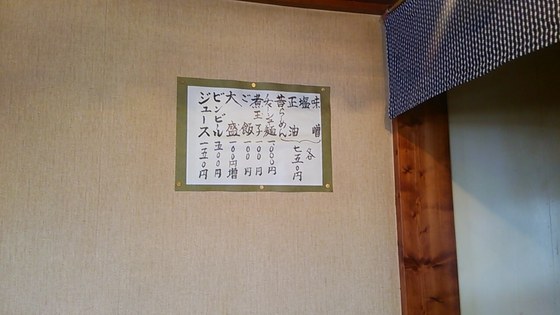 味噌
塩
正油
昔らーめん
各七五〇円
チャーシュー麺 一〇〇〇円
煮玉子 一〇〇円
ご飯 一〇〇円
大盛 一〇〇円増
ビンビール 五〇〇円
ジュース 一五〇円